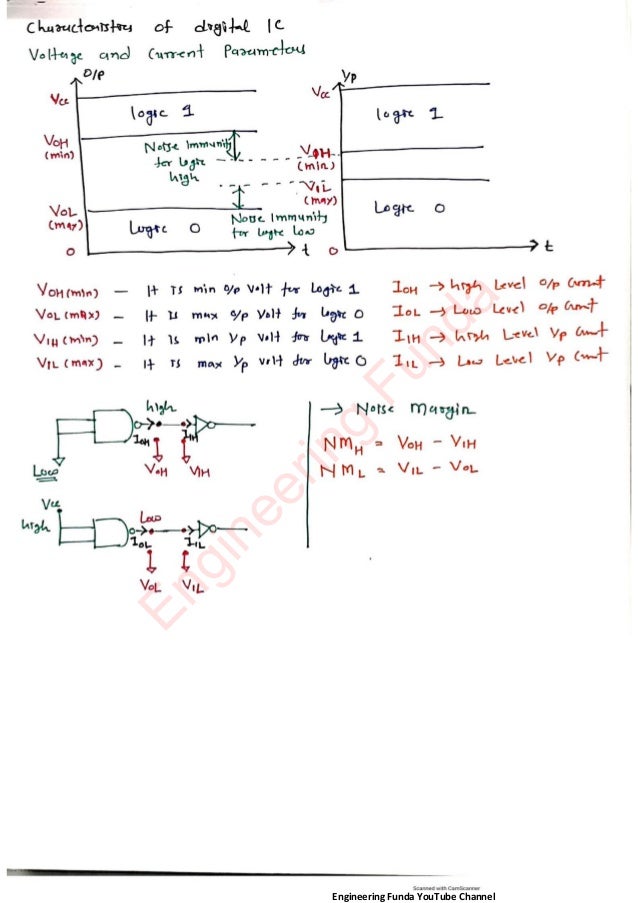 Characteristics of digital IC
Voltage and Current Parameters
O/P
Vcc
logic 1
VOH
(min)
Noise Immunity
for logic
high
VOL
(max)
Logic 0
Noise Immunity
for logic low
0
t
I/p
Vcc
logic 1
VOH
(min)
VIL
(max)
Logic 0
0
t
VOH(min) – It is min o/p volt for Logic 1
VOL(max) – It is max o/p volt for logic 0
VIH(min) – It is min I/p volt for Logic 1
VIL(max) – It is max I/p volt for logic 0
IOH → high Level o/p Current
IOL → Low Level o/p Current
IIH → high Level I/p Current
IIL → Low Level I/p Current
high
IOH
IIH
Low
VOH
VIH
Vcc
high
Low
IOL
IIL
VOL
VIL
→ Noise Margin
NMH = VOH – VIH
NML = VIL – VOL
Engineering Funda
Scanned with CamScanner
Engineering Funda YouTube Channel